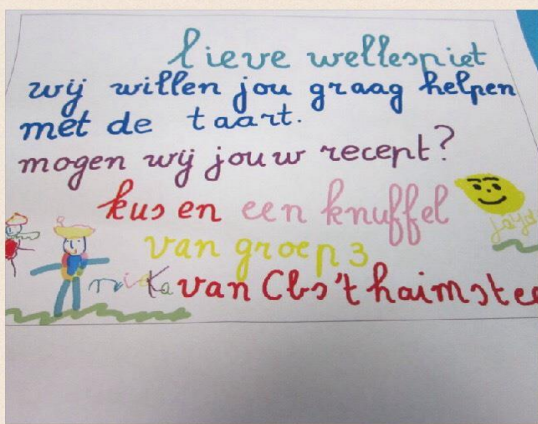 lieve wellespiet
wij willen jou graag helpen
met de taart.
mogen wij jouw recept?
kus en een knuffel
van groep 3
van Cbs 't haimstee